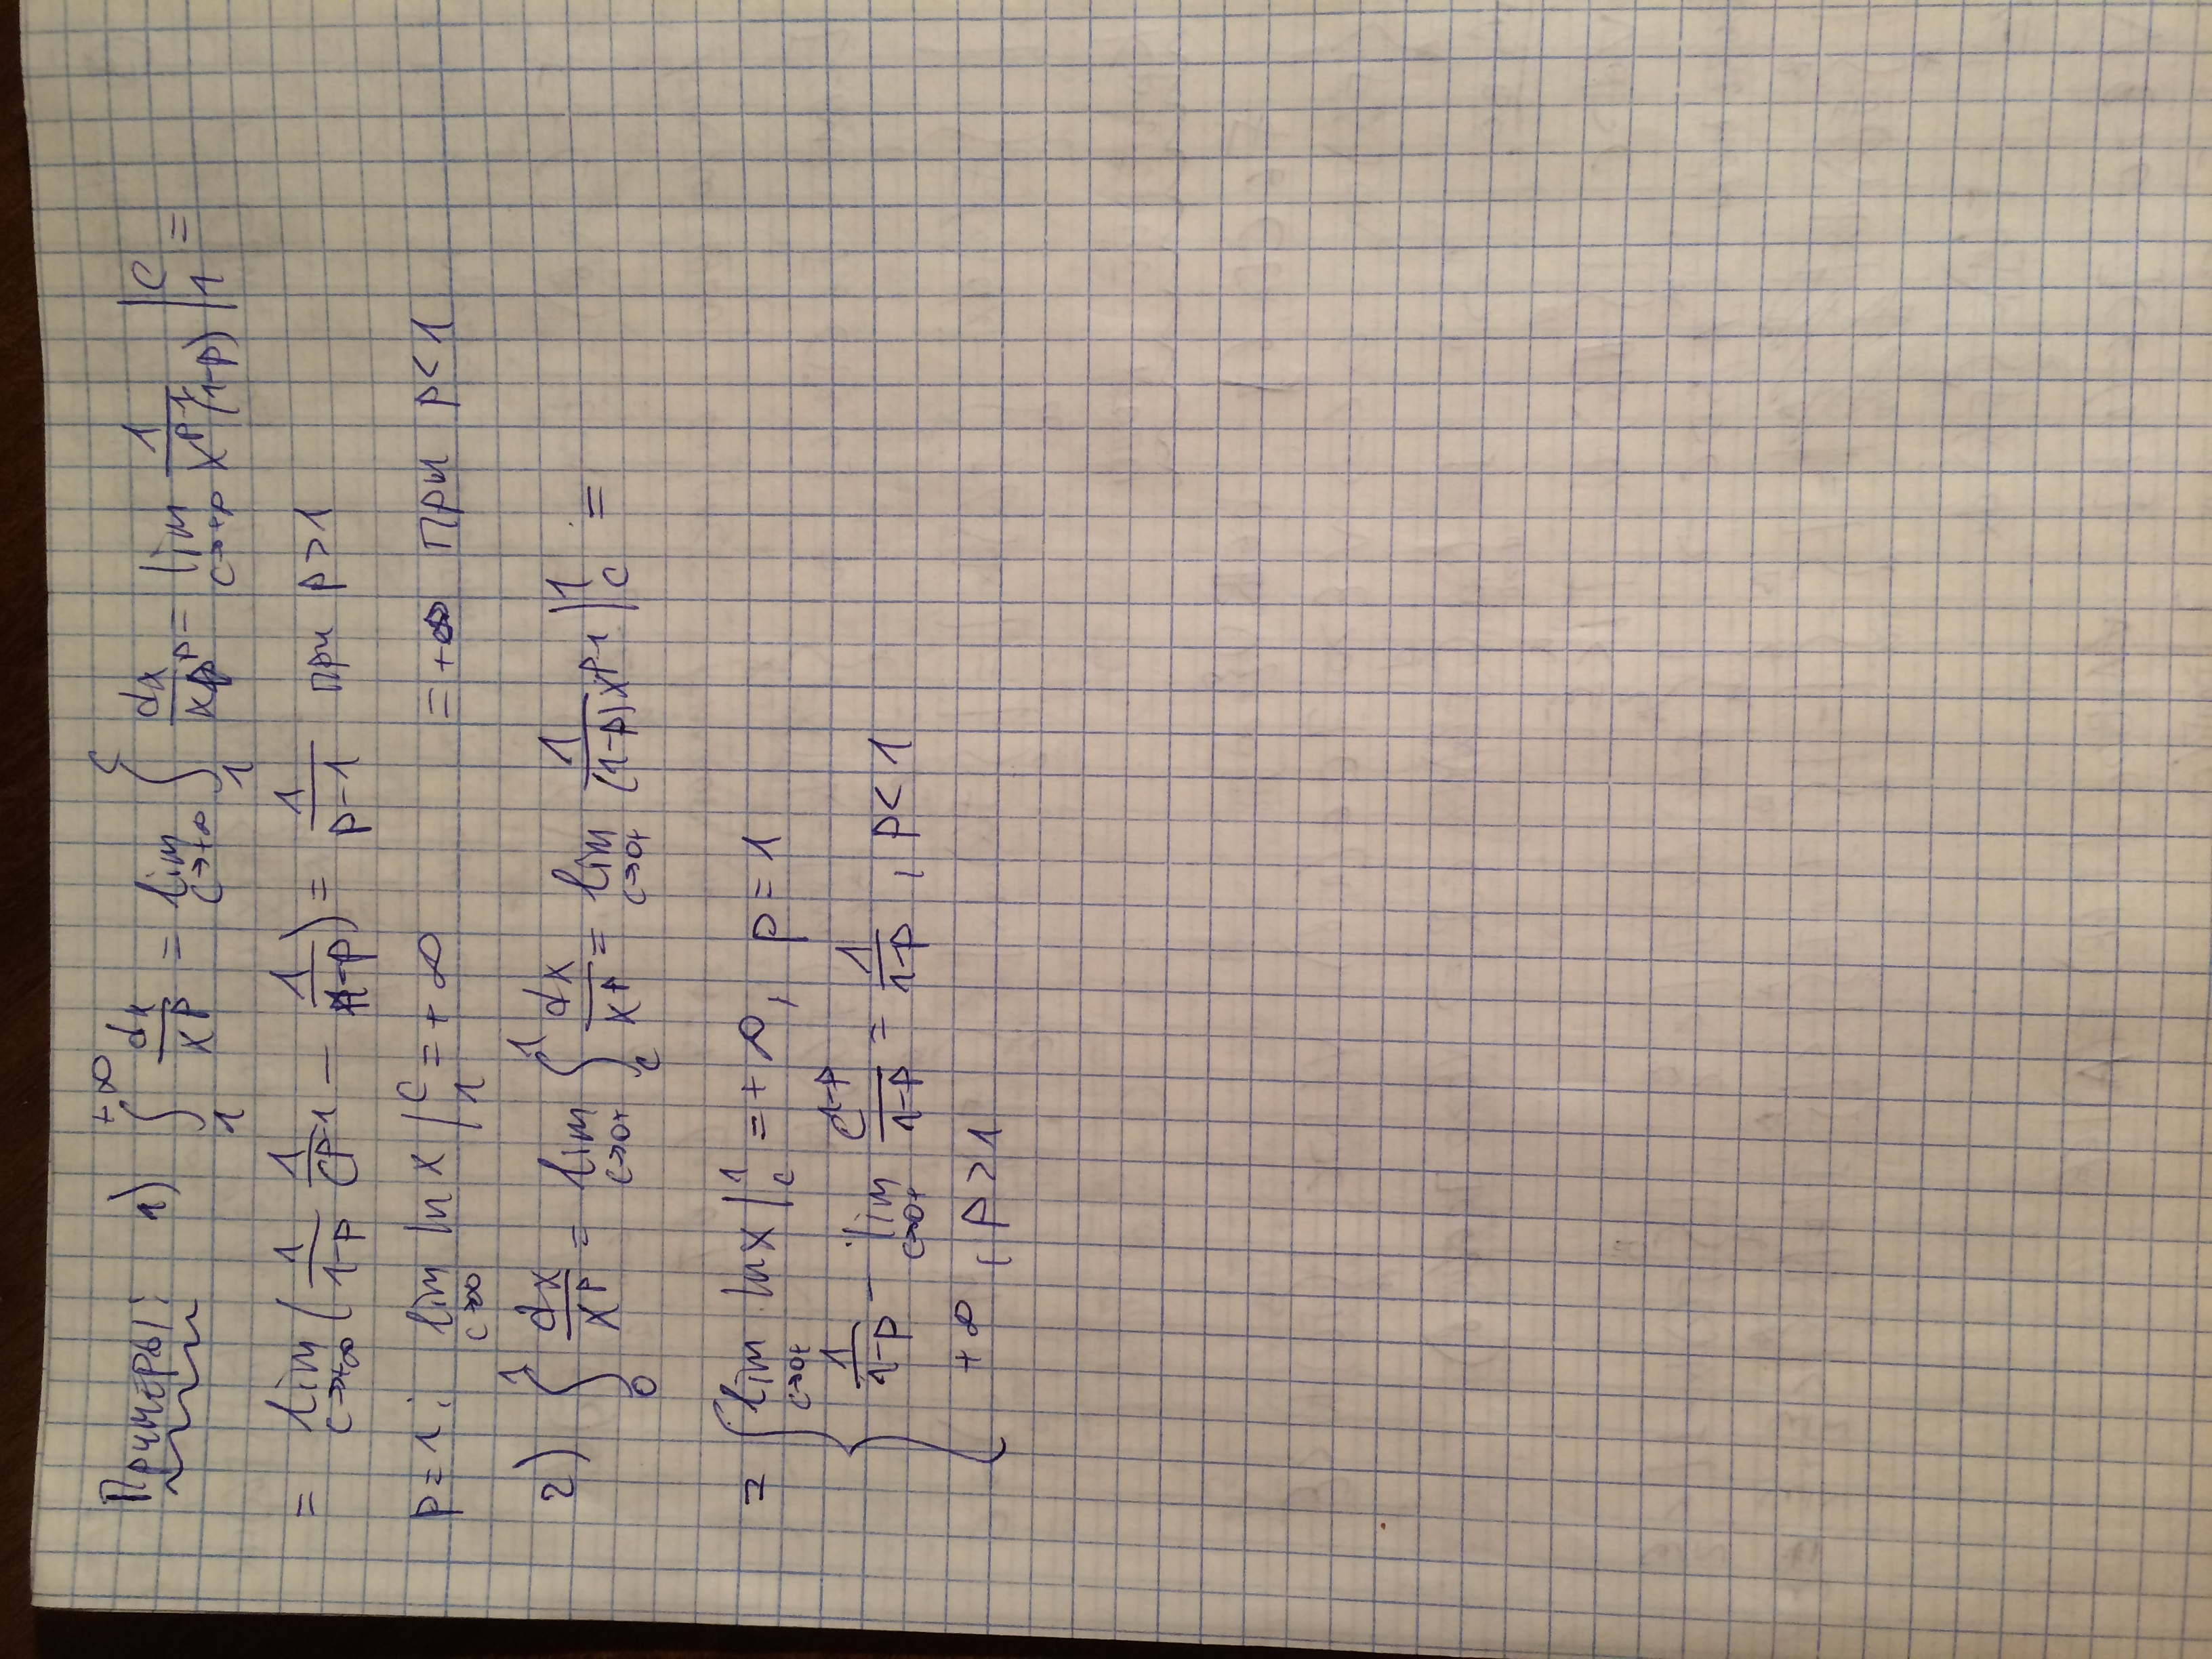 Примеры: 1) ∫₁^{+∞} dx/x^p = lim_{c→+∞} ∫₁^c dx/x^p = lim_{c→+∞} 1/(x^{p-1}(1-p)) |₁^c =
= lim_{c→+∞} (1/(1-p) 1/c^{p-1} − 1/(1-p)) = 1/(p-1) при p>1
p=1: lim_{c→∞} ln x |₁^c = +∞ = +∞ при p<1
2) ∫₀^1 dx/x^p = lim_{c→0+} ∫_c^1 dx/x^p = lim_{c→0+} 1/((1-p)x^{p-1}) |_c^1 =
= { lim_{c→0+} ln x |_c^1 = +∞, p=1
1/(1-p) − lim_{c→0+} c^{1-p}/(1-p) = 1/(1-p), p<1
+∞, p>1